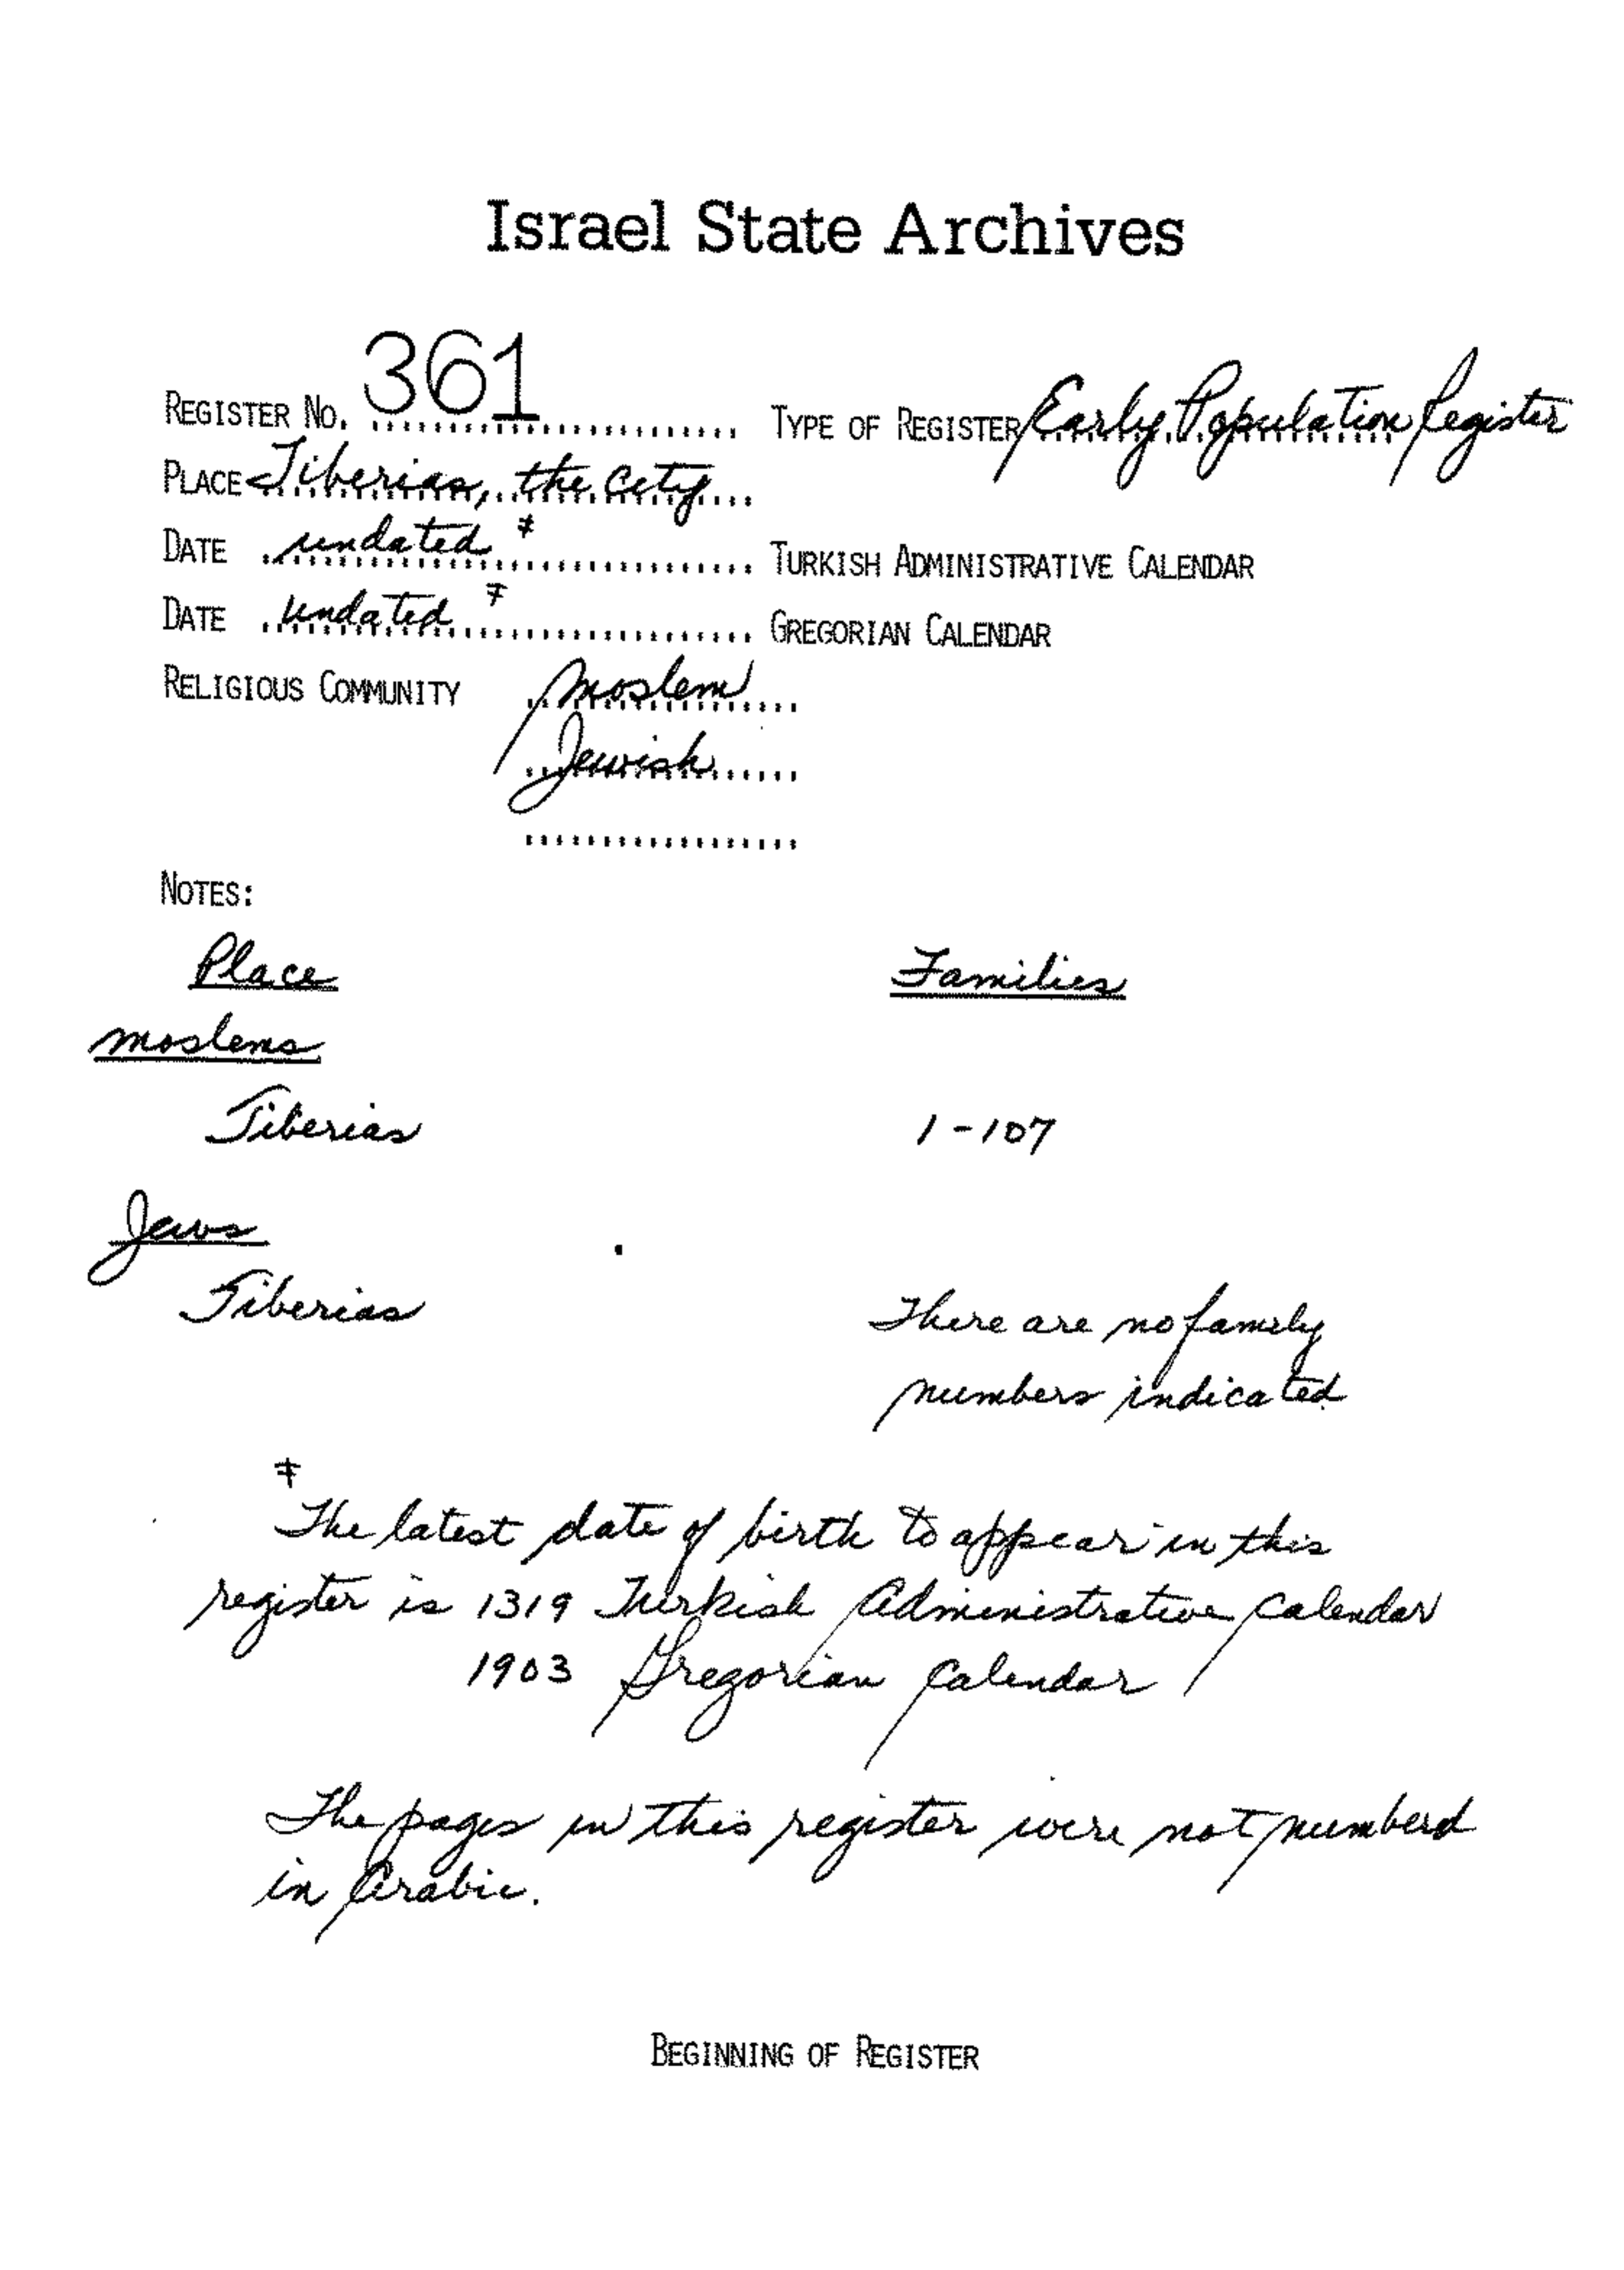 Israel State Archives
REGISTER NO. 361 TYPE OF REGISTER Early Population Register
PLACE Tiberias, the City
DATE undated ‡ TURKISH ADMINISTRATIVE CALENDAR
DATE undated ‡ GREGORIAN CALENDAR
RELIGIOUS COMMUNITY Moslem
Jewish
NOTES:
Place Families
Moslems
Tiberias 1-107
Jews
Tiberias There are no family
numbers indicated
‡
The latest date of birth to appear in this
register is 1319 Turkish Administrative Calendar
1903 Gregorian Calendar
The pages in this register were not numberd
in Arabic.
BEGINNING OF REGISTER